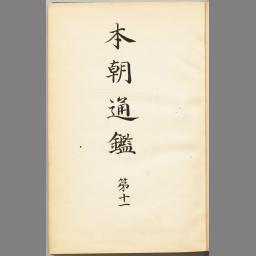 本朝通鑑
第十一